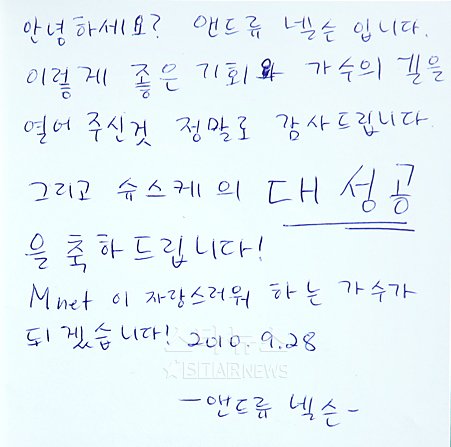 안녕하세요? 앤드류 넬슨 입니다.
이렇게 좋은 기회와 가수의 길을
열어 주신것 정말로 감사드립니다.
그리고 슈스케의 대성공
을 축하드립니다!
Mnet 이 자랑스러워 하는 가수가
되겠습니다! 2010.9.28
스타뉴스
STARNEWS
-앤드류 넬슨-